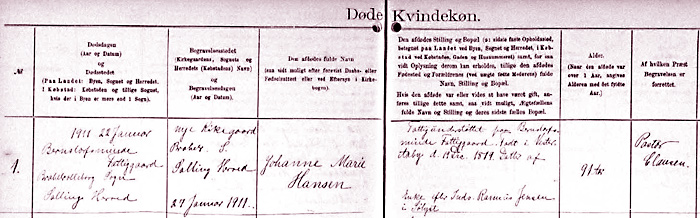 Døde Kvindekøn.
№
Dødsdagen
(Aar og Datum)
og
Dødsstedet
(Paa Landet: Byen, Sognet og Herredet.
I Købstad: Købstaden og tillige Sognet,
hvis der i Byen er mere end 1 Sogn).
Begravelsesstedet
(Kirkegaardens, Sognets og
Herredets (Købstadens) Navn)
og
Begravelsesdagen
(Aar og Datum).
Den afdødes fulde Navn
(saa vidt muligt efter forevist Daabs- eller
Fødselsattest eller ved Eftersyn i Kirke-
bogen).
Den afdødes Stilling og Bopæl (ɔ: sidste faste Opholdssted,
betegnet paa Landet ved Byen, Sognet og Herredet, i Køb-
stad ved Købstaden, Gaden og Husnummeret) samt, for saa
vidt Oplysning derom kan erholdes, tillige den afdødes
Fødested og Forældrenes (ved uægte fødte Moderens) fulde
Navn, Stilling og Bopæl.
Hvis den afdøde var eller vides at have været gift, an-
føres tillige dette samt, saa vidt muligt, Ægtefællens
fulde Navn og Stilling og deres sidste fælles Bopæl.
Alder.
(Naar den afdøde var
over 1 Aar, angives
Alderen med det fyldte
Aar.)
Af hvilken Præst
Begravelsen er
forrettet.
1.
1911 22 Januar
Bernstofsminde
Fattiggaard
Sogn
Sallinge Herred
nye Kirkegaard
Brahet. S.
Salling Herred
27 Januar 1911.
Johanne Marie
Hansen
Fattigunderstøttet paa Bernstofs-
minde Fattiggaard. Født i Vester
d. 1819. Datter af
Enke efter Inds. Rasmus Jensen
i
91 Aar
Pastor
Clausen.